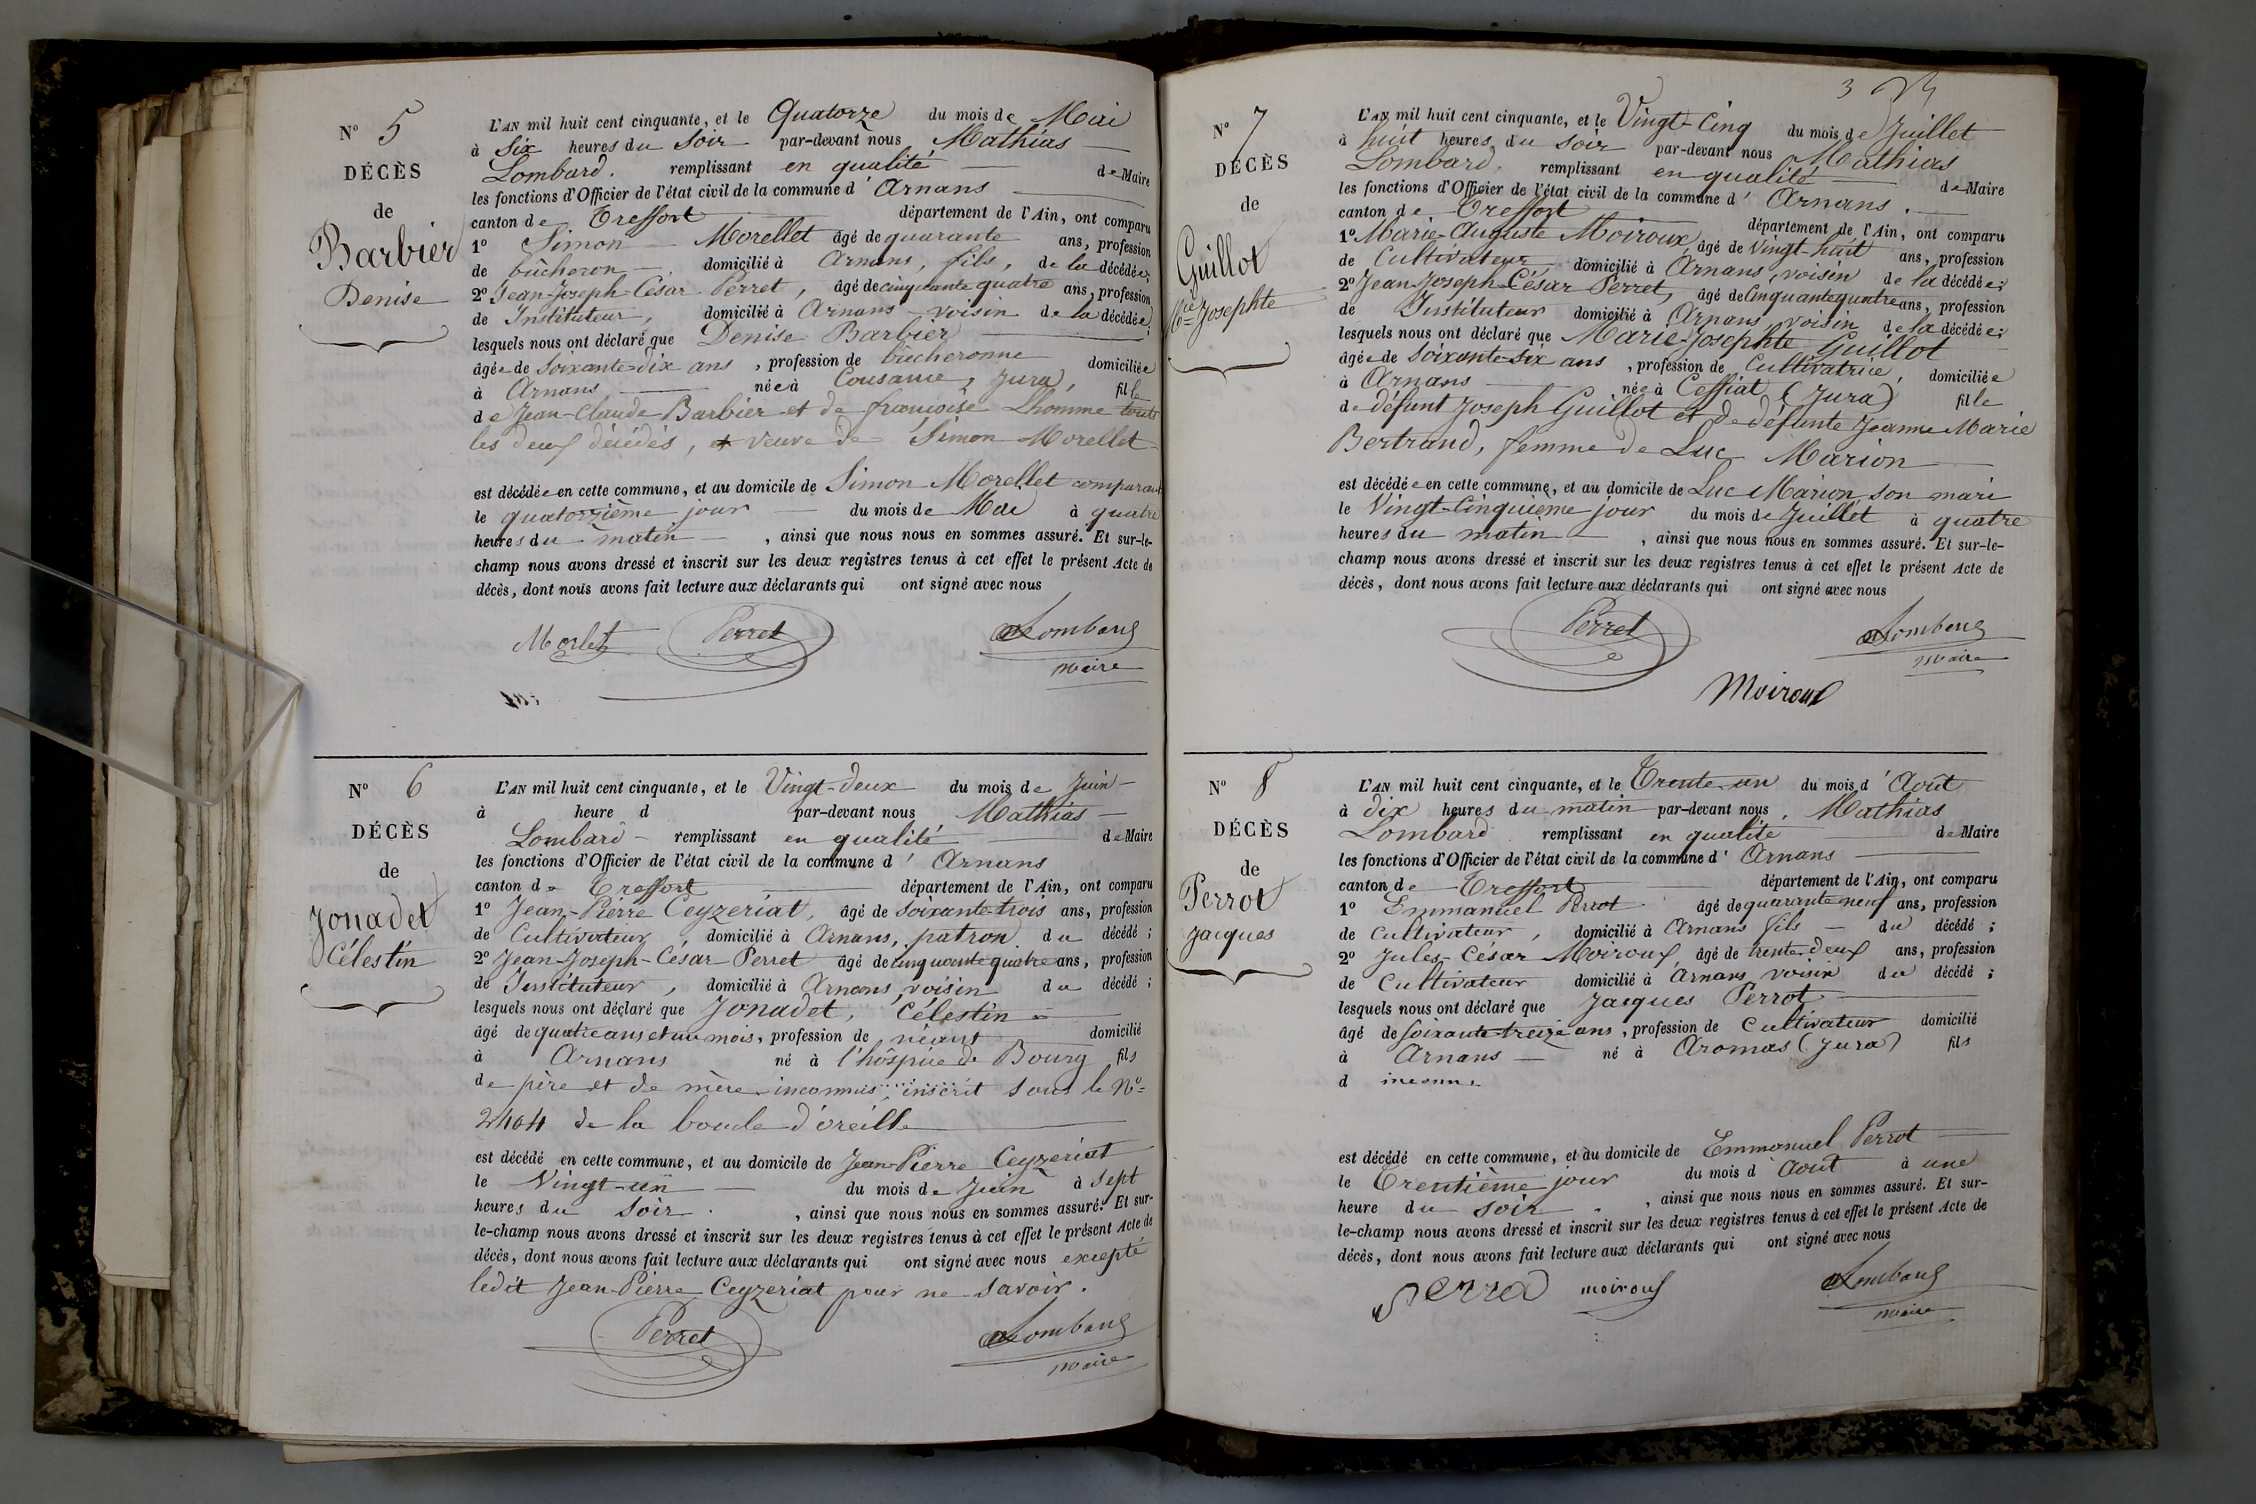 N° 5
DÉCÈS
de
Barbier
Denise
L'AN mil huit cent cinquante, et le Quatorze du mois de Mai
à six heures du soir par-devant nous Mathias
Lombard. remplissant en qualité de Maire
les fonctions d'Officier de l'état civil de la commune d'Arnans
canton de Treffort département de l'Ain, ont comparu
1° Simon Morellet âgé de quarante ans, profession
de bûcheron domicilié à Arnans, fils, de la décédée;
2° Jean-Joseph-César Perret, âgé de cinquante quatre ans, profession
de Instituteur, domicilié à Arnans voisin de la décédée;
lesquels nous ont déclaré que Denise Barbier
âgée de soixante-dix ans, profession de bûcheronne domiciliée
à Arnans née à Cousance, Jura, fille
de Jean-Claude Barbier et de françoise Lhomme touts
les deux décédés, et veuve de Simon Morellet
est décédée en cette commune, et au domicile de Simon Morellet comparant
le quatorzième jour du mois de Mai à quatre
heures du matin, ainsi que nous nous en sommes assuré. Et sur-le-
champ nous avons dressé et inscrit sur les deux registres tenus à cet effet le présent Acte de
décès, dont nous avons fait lecture aux déclarants qui ont signé avec nous
Morlet Perret Lombard
maire
N° 6
DÉCÈS
de
Jonadet
Célestin
L'AN mil huit cent cinquante, et le Vingt-deux du mois de Juin
à heure d par-devant nous Mathias
Lombard remplissant en qualité de Maire
les fonctions d'Officier de l'état civil de la commune d'Arnans
canton de Treffort département de l'Ain, ont comparu
1° Jean-Pierre Ceyzeriat, âgé de soixante-trois ans, profession
de Cultivateur, domicilié à Arnans, patron du décédé;
2° Jean-Joseph-César Perret âgé de cinquante quatre ans, profession
de Instituteur, domicilié à Arnans, voisin du décédé;
lesquels nous ont déclaré que Jonadet, Célestin
âgé de quatre ans et un mois, profession de néant domicilié
à Arnans né à l'hôspice de Bourg fils
de père et de mère inconnus, inscrit sous le N°
2404 de la boucle d'oreille
est décédé en cette commune, et au domicile de Jean-Pierre Ceyzeriat
le Vingt-un du mois de Juin à sept
heures du soir, ainsi que nous nous en sommes assuré. Et sur-
le-champ nous avons dressé et inscrit sur les deux registres tenus à cet effet le présent Acte de
décès, dont nous avons fait lecture aux déclarants qui ont signé avec nous excepté
ledit Jean-Pierre Ceyzeriat pour ne savoir.
Perret Lombard
maire
3
N° 7
DÉCÈS
de
Guillot
Mie Josephte
L'AN mil huit cent cinquante, et le Vingt-Cinq du mois de Juillet
à huit heures du soir par-devant nous Mathias
Lombard. remplissant en qualité de Maire
les fonctions d'Officier de l'état civil de la commune d'Arnans.
canton de Treffort département de l'Ain, ont comparu
1° Marie-Auguste Moiroux, âgé de Vingt-huit ans, profession
de Cultivateur domicilié à Arnans, voisin de la décédée;
2° Jean-Joseph-César Perret, âgé de Cinquante quatre ans, profession
de Instituteur domicilié à Arnans, voisin de la décédée;
lesquels nous ont déclaré que Marie-Josephte Guillot
âgée de soixante-six ans, profession de Cultivatrice, domiciliée
à Arnans née à Ceffiat (Jura) fille
de défunt Joseph Guillot et de défunte Jeanne Marie
Bertrand, femme de Luc Marion
est décédée en cette commune, et au domicile de Luc Marion, son mari
le Vingt-Cinquième jour du mois de Juillet à quatre
heures du matin, ainsi que nous nous en sommes assuré. Et sur-le-
champ nous avons dressé et inscrit sur les deux registres tenus à cet effet le présent Acte de
décès, dont nous avons fait lecture aux déclarants qui ont signé avec nous
Perret Lombard
maire
Moiroux
N° 8
DÉCÈS
de
Perrot
Jacques
L'AN mil huit cent cinquante, et le Trente-un du mois d'Août
à dix heures du matin par-devant nous, Mathias
Lombard remplissant en qualité de Maire
les fonctions d'Officier de l'état civil de la commune d'Arnans
canton de Treffort département de l'Ain, ont comparu
1° Emmanuel Perrot âgé de quarante neuf ans, profession
de Cultivateur, domicilié à Arnans fils du décédé;
2° Jules-César Moiroux, âgé de trente-deux ans, profession
de Cultivateur domicilié à Arnans, voisin du décédé;
lesquels nous ont déclaré que Jacques Perrot
âgé de soixante-treize ans, profession de Cultivateur domicilié
à Arnans né à Aromas (Jura) fils
d inconnu
est décédé en cette commune, et au domicile de Emmanuel Perrot
le Trentième jour du mois d'Août à une
heure du soir, ainsi que nous nous en sommes assuré. Et sur-
le-champ nous avons dressé et inscrit sur les deux registres tenus à cet effet le présent Acte de
décès, dont nous avons fait lecture aux déclarants qui ont signé avec nous
moiroux Lombard
maire